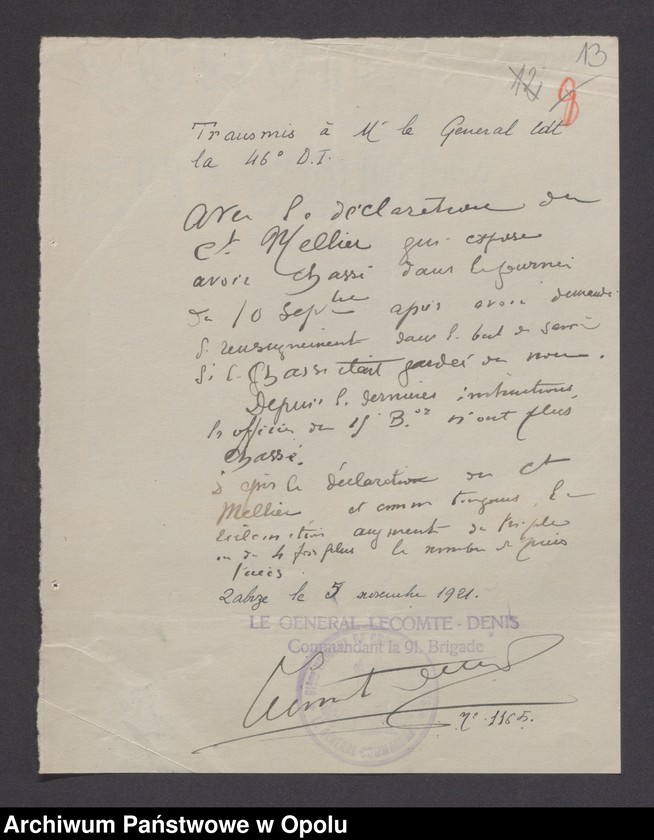 13
12
8
Transmis à Mr le General Cdt
la 46e D.I.
Avec la déclaration du
Ct Mellier qui expose
avoir chassé dans la journée
du 10 Septbre après avoir demandé
renseignement dans le but de savoir
si la chasse était gardée ou non.
Depuis les dernières instructions,
les officiers du B.on n'ont plus
chassé.
D'après la déclaration du Ct
Mellier et comme toujours, les
augmentent du triple
ou de 4 fois plus le nombre de pièces
tuées.
Zabrze le 5 novembre 1921.
LE GENERAL LECOMTE-DENIS
Commandant la 91. Brigade
No 1165.
Archiwum Państwowe w Opolu